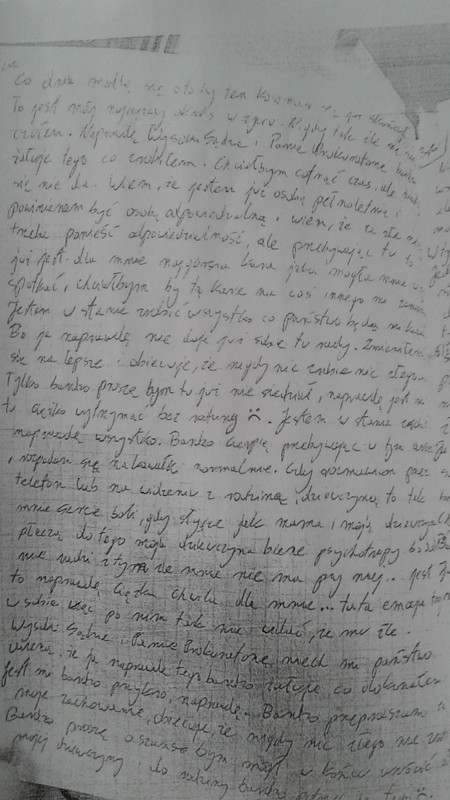 Co dnia modlę się o to by ten koszmar się już skończył
To jest mój najgorszy okres w życiu. Nigdy tak źle się nie
czułem. Naprawdę Wysoki Sądzie i Panie Prokuratorze bardzo
żałuje tego co zrobiłem. Chciałbym cofnąć czas, ale
się nie da. Wiem, że jestem już osobą pełnoletnią i
powinienem być osobą odpowiedzialną i wiem, że za złe
trzeba ponieść odpowiedzialność, ale przebywając tu to
już jest dla mnie najgorsza kara jaka mogła mnie
spotkać, chciałbym by tą karę na coś innego
Jestem w stanie zrobić wszystko co państwo będą
Bo ja naprawdę nie daje już sobie tu rady. Zmieniłem
się na lepsze i obiecuję, że nigdy nic złego
Tylko bardzo proszę bym tu już nie siedział, naprawdę jest
tu ciężko wytrzymać bez rodziny ☹. Jestem w stanie
naprawdę wszystko. Bardzo cierpię przebywając w tym
, rozpadam się na kawałki normalnie. Gdy rozmawiam przez
telefon lub na widzeniu z rodziną, dziewczyną to tak
mnie serce boli, gdy słyszę jak mama i moja dziewczyna
płaczą do tego moja dziewczyna bierze psychotropy bo
nie radzi z tym że mnie nie ma przy niej.. jest
to naprawdę ciężka chwila dla mnie... tata
w sobie więc po nim tak nie widać, że mu źle.
Wysoki Sądzie i Panie Prokuratorze, niech mi państwo
wierzą, że ja naprawdę tego bardzo żałuje co dokonałem
jest mi bardzo przykro, naprawdę.. Bardzo przepraszam
moje zachowanie, obiecuje, że nigdy nic złego nie
Bardzo proszę o szansę bym mógł w końcu wrócić
mojej dziewczyny i do rodziny bardzo